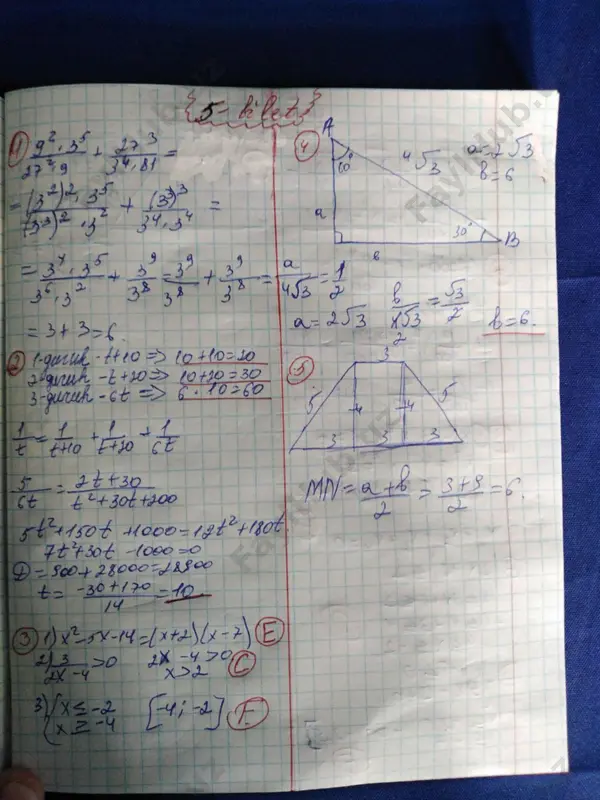 5-bilet
1) 9²·3⁵/27²·9 + 27³/3⁴·81 =
= (3²)²·3⁵/(3³)²·3² + (3³)³/3⁴·3⁴ =
= 3⁴·3⁵/3⁶·3² + 3⁹/3⁸ = 3⁹/3⁸ + 3⁹/3⁸ =
= 3+3=6.
2) 1- - t+10 => 10+10=20
2- - t+20 => 10+20=30
3- - 6t => 6·10=60
1/t = 1/t+10 + 1/t+20 + 1/6t
5/6t = 2t+30/t²+30t+200
5t²+150t+1000=12t²+180t
7t²+30t-1000=0
D=900+28000=28900
t= -30+170/14 = 10
3) 1) x²-5x-14=(x+2)(x-7) E
2) 3/2x-4 >0 2x-4>0 C
x>2
3) { x≤-2 [-4;-2] F.
x≥-4
4) A
60° 4√3 a=2√3
b=6
a
30° B
b
a/4√3 = 1/2
a=2√3 b/4√3 = √3/2 b=6.
2
5) 3
5 4 4 5
3 3 3
MN= a+b/2 = 3+9/2 = 6.
Fayllar
Fayllub.uz